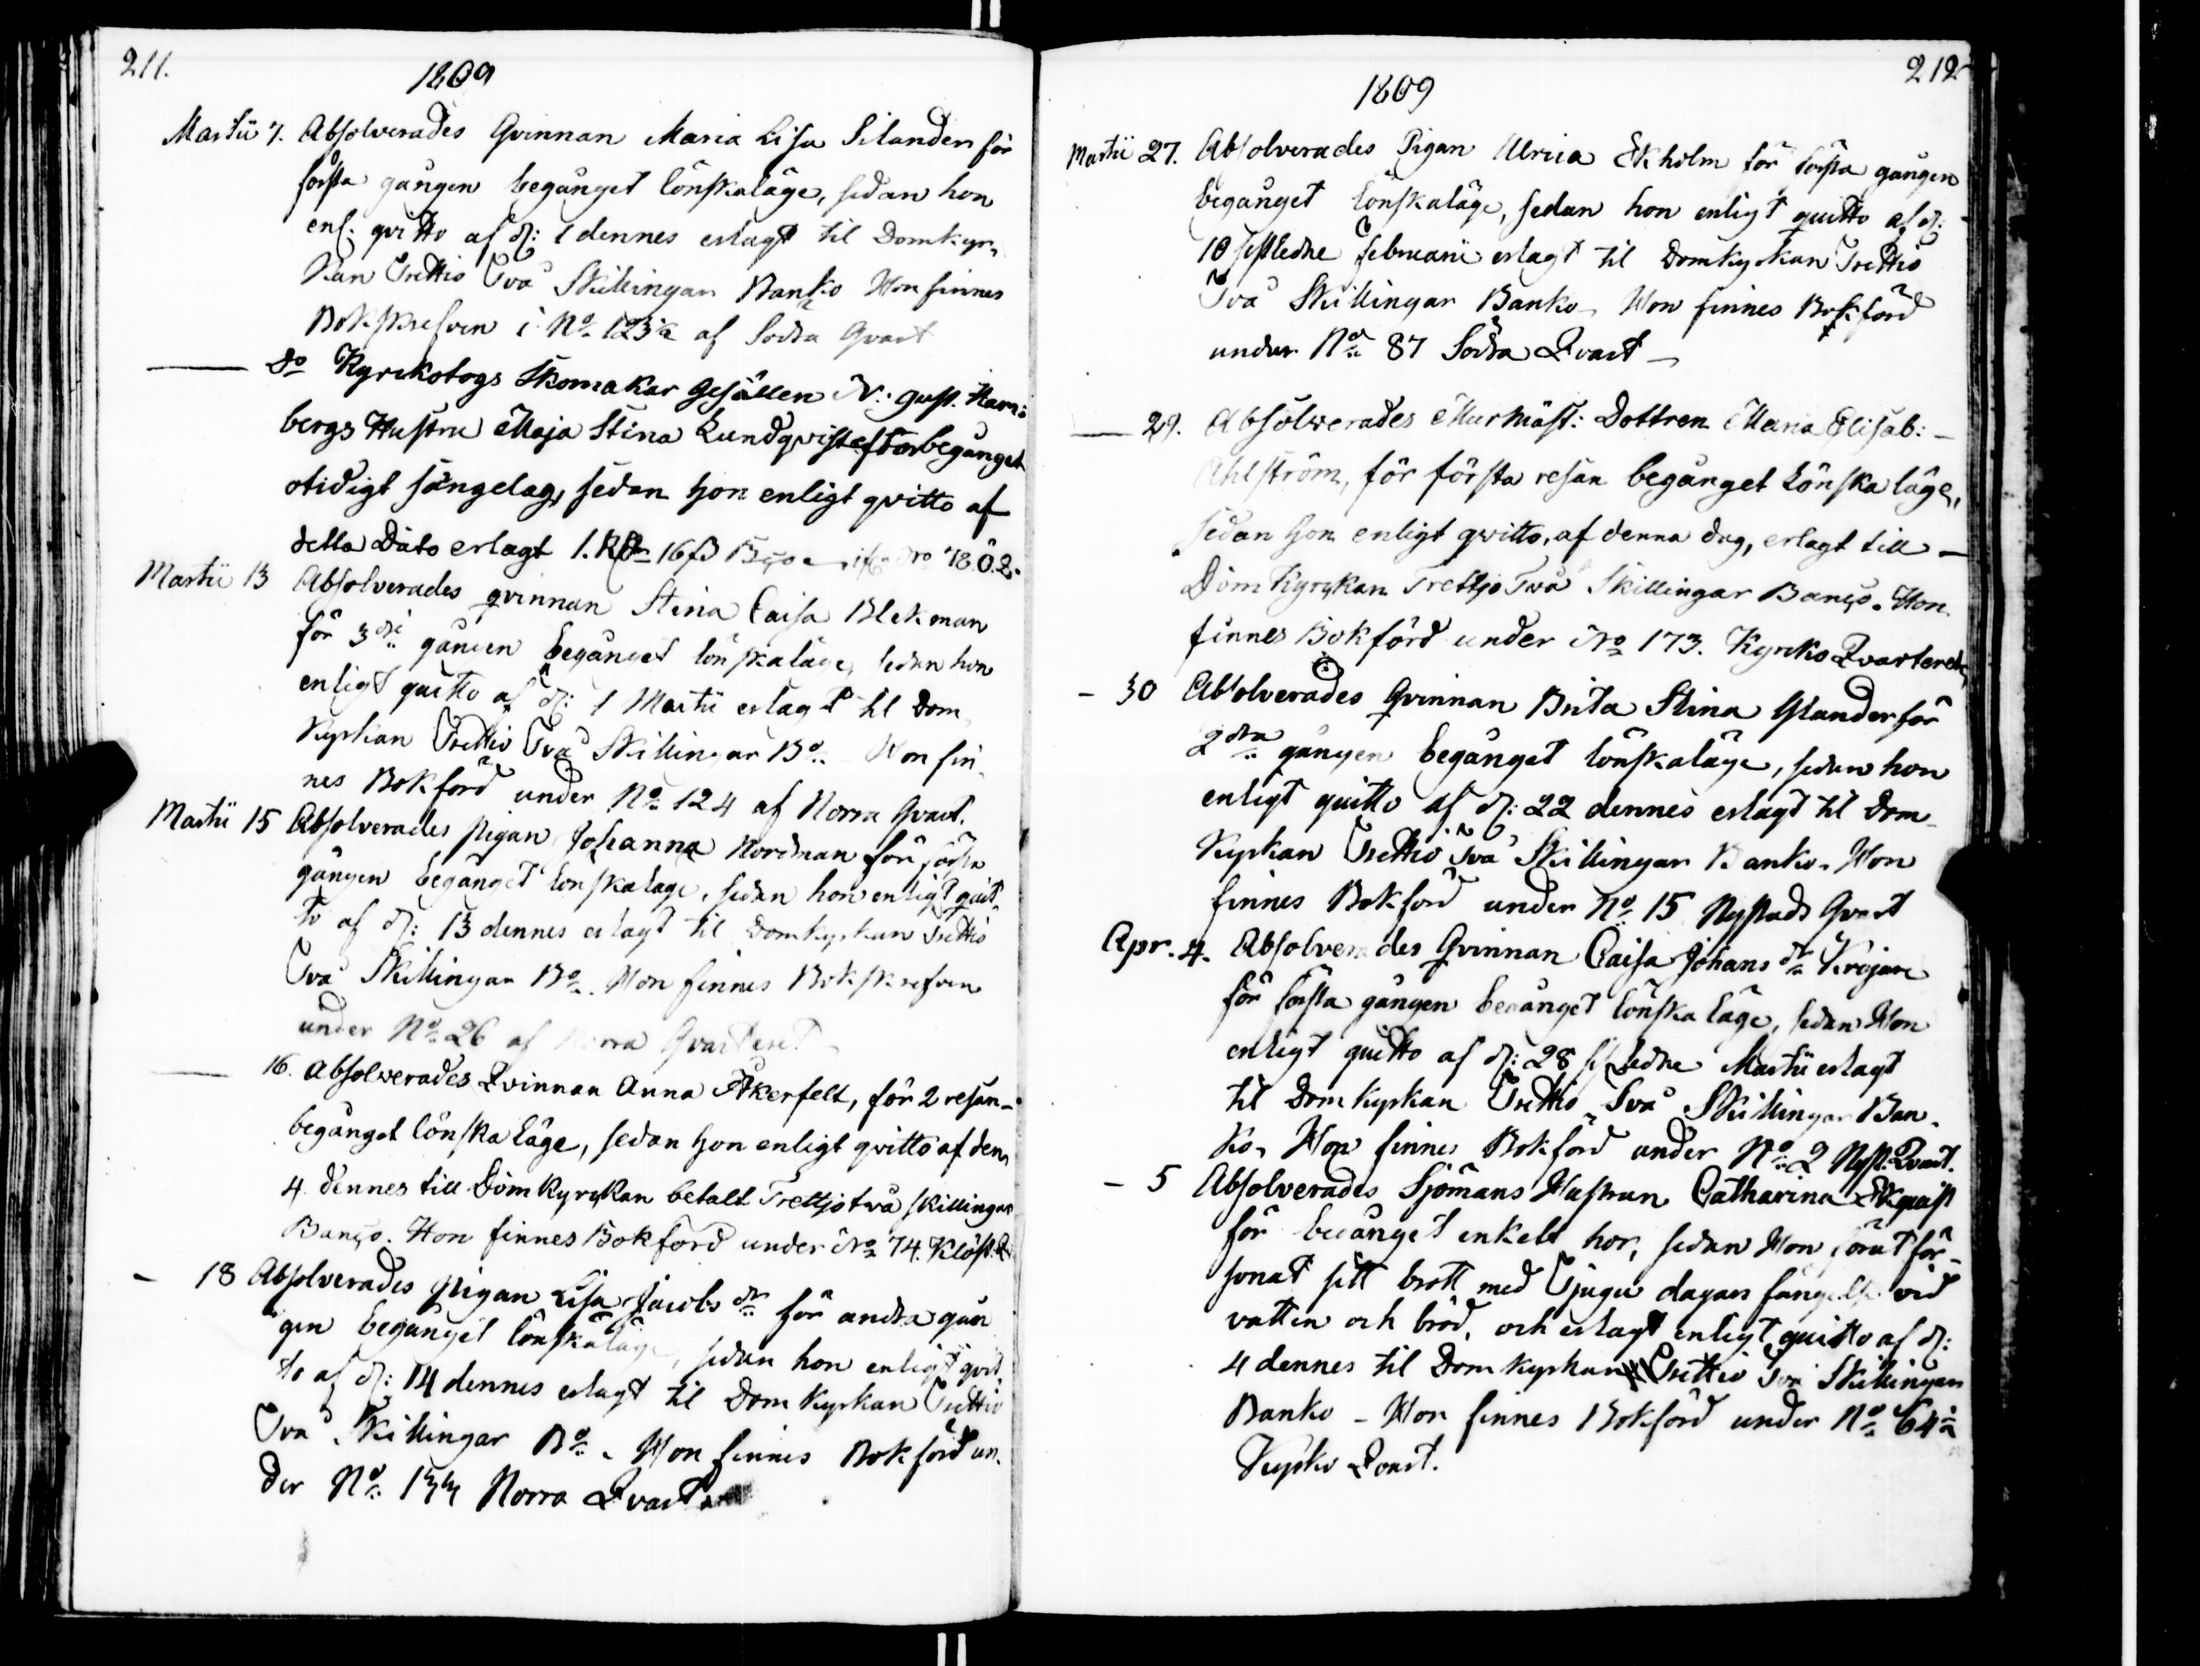 211.
1809
Martii 7. Absolverades Qvinnan Maria Lisa Silander för
första gången begånget lönskaläge, sedan hon
enl. qvitto af d: 1 dennes erlagt til Domkyr-
kan Trettio Två Skillingar Banko Hon finnes
Bokskrefven i No 123 1/2 af Södra Qvart
Do Kyrkotogs Skomakar Gesällen N: Gust. Ham:
bergs Hustru Maja Stina Lundqvist efter begånget
otidigt sängelag, sedan hon enligt qvitto af
detta Dato erlagt 1. Rdr 16 ß Bço No 78. Ö. Q.
Martii 13 Absolverades qvinnan Stina Caisa Blekman
för 3dje gången begånget lönskaläge, sedan hon
enligt quitto af d: 1 Martii erlagt til Dom
Kyrkan Trettio Två Skillingar Bo. Hon fin-
nes Bokförd under No 124 af Norra Qvart.
Martii 15 Absolverades pigan Johanna Nordman för första
gången begånget lönskaläge, sedan hon enligt quit-
to af d: 13 dennes erlagt til Domkyrkan Trettio
Två Skillingar Bo. Hon finnes Bokskrefven
under No 26 af Norra Qvarteret
16. Absolverades Qvinnan Anna Åkerfelt, för 2 resan-
begånget lönska läge, sedan hon enligt qvitto af den
4 dennes till Domkyrkan betalt Trettjo två skillingar
Banço. Hon finnes Bokförd under No 74. Klöst. Q.
- 18 Absolverades pigan Lisa Jacobs dr för andra gån
gen begånget lönskaläge, sedan hon enligt qvit-
to af d: 14 dennes erlagt til Domkyrkan Trettio
Två Skillingar Bo. Hon finnes Bokförd un-
der No 134 Norra Qvart
212
1809
Martii 27. Absolverades Pigan Ulrica Ekholm för första gången
begånget lönskaläge, sedan hon enligt quitto af d:
10 sistledne Februarii erlagt til Domkyrkan Trettio
Två Skillingar Banko. Hon finnes Bokförd
under No 87 Södra Qvart
29. Absolverades Murmäst: Dottren Maria Elisab: -
Ahlström, för första resan begånget Lönska läge,
sedan hon enligt qvitto, af denna dag, erlagt till -
Dom Kyrkan Trettjo Två Skillingar Banço. Hon
finnes Bokförd under No 173. Kyrko Qvarteret
- 30 Absolverades Qvinnan Brita Stina Glander för
2dra gången begånget lönskaläge, sedan hon
enligt quitto af d: 22 dennes erlagt til Dom-
Kyrkan Trettio Två Skillingar Banko. Hon
finnes Bokförd under No 15 Nystads Qvart
Apr. 4. Absolverades Qvinnan Caisa Johans dr Krojare
för första gången begånget lönska läge, sedan Hon
enligt quitto af d: 28 sistledne Martii erlagt
til Domkyrkan Trettio Två Skillingar Ban-
ko, Hon finnes Bokförd under No 2 Nyst. Qvart.
- 5 Absolverades Sjömans Hustrun Catharina Ekquist
för begånget enkelt hor, sedan Hon förut för-
sonat sitt brott med Tjugu dagars fängelse vid
vatten och bröd, och erlagt enligt quitto af d:
4 dennes til Domkyrkan Trettio Två Skillingar
Banko - Hon finnes Bokförd under No 64 1/2
Kyrko Qvart.